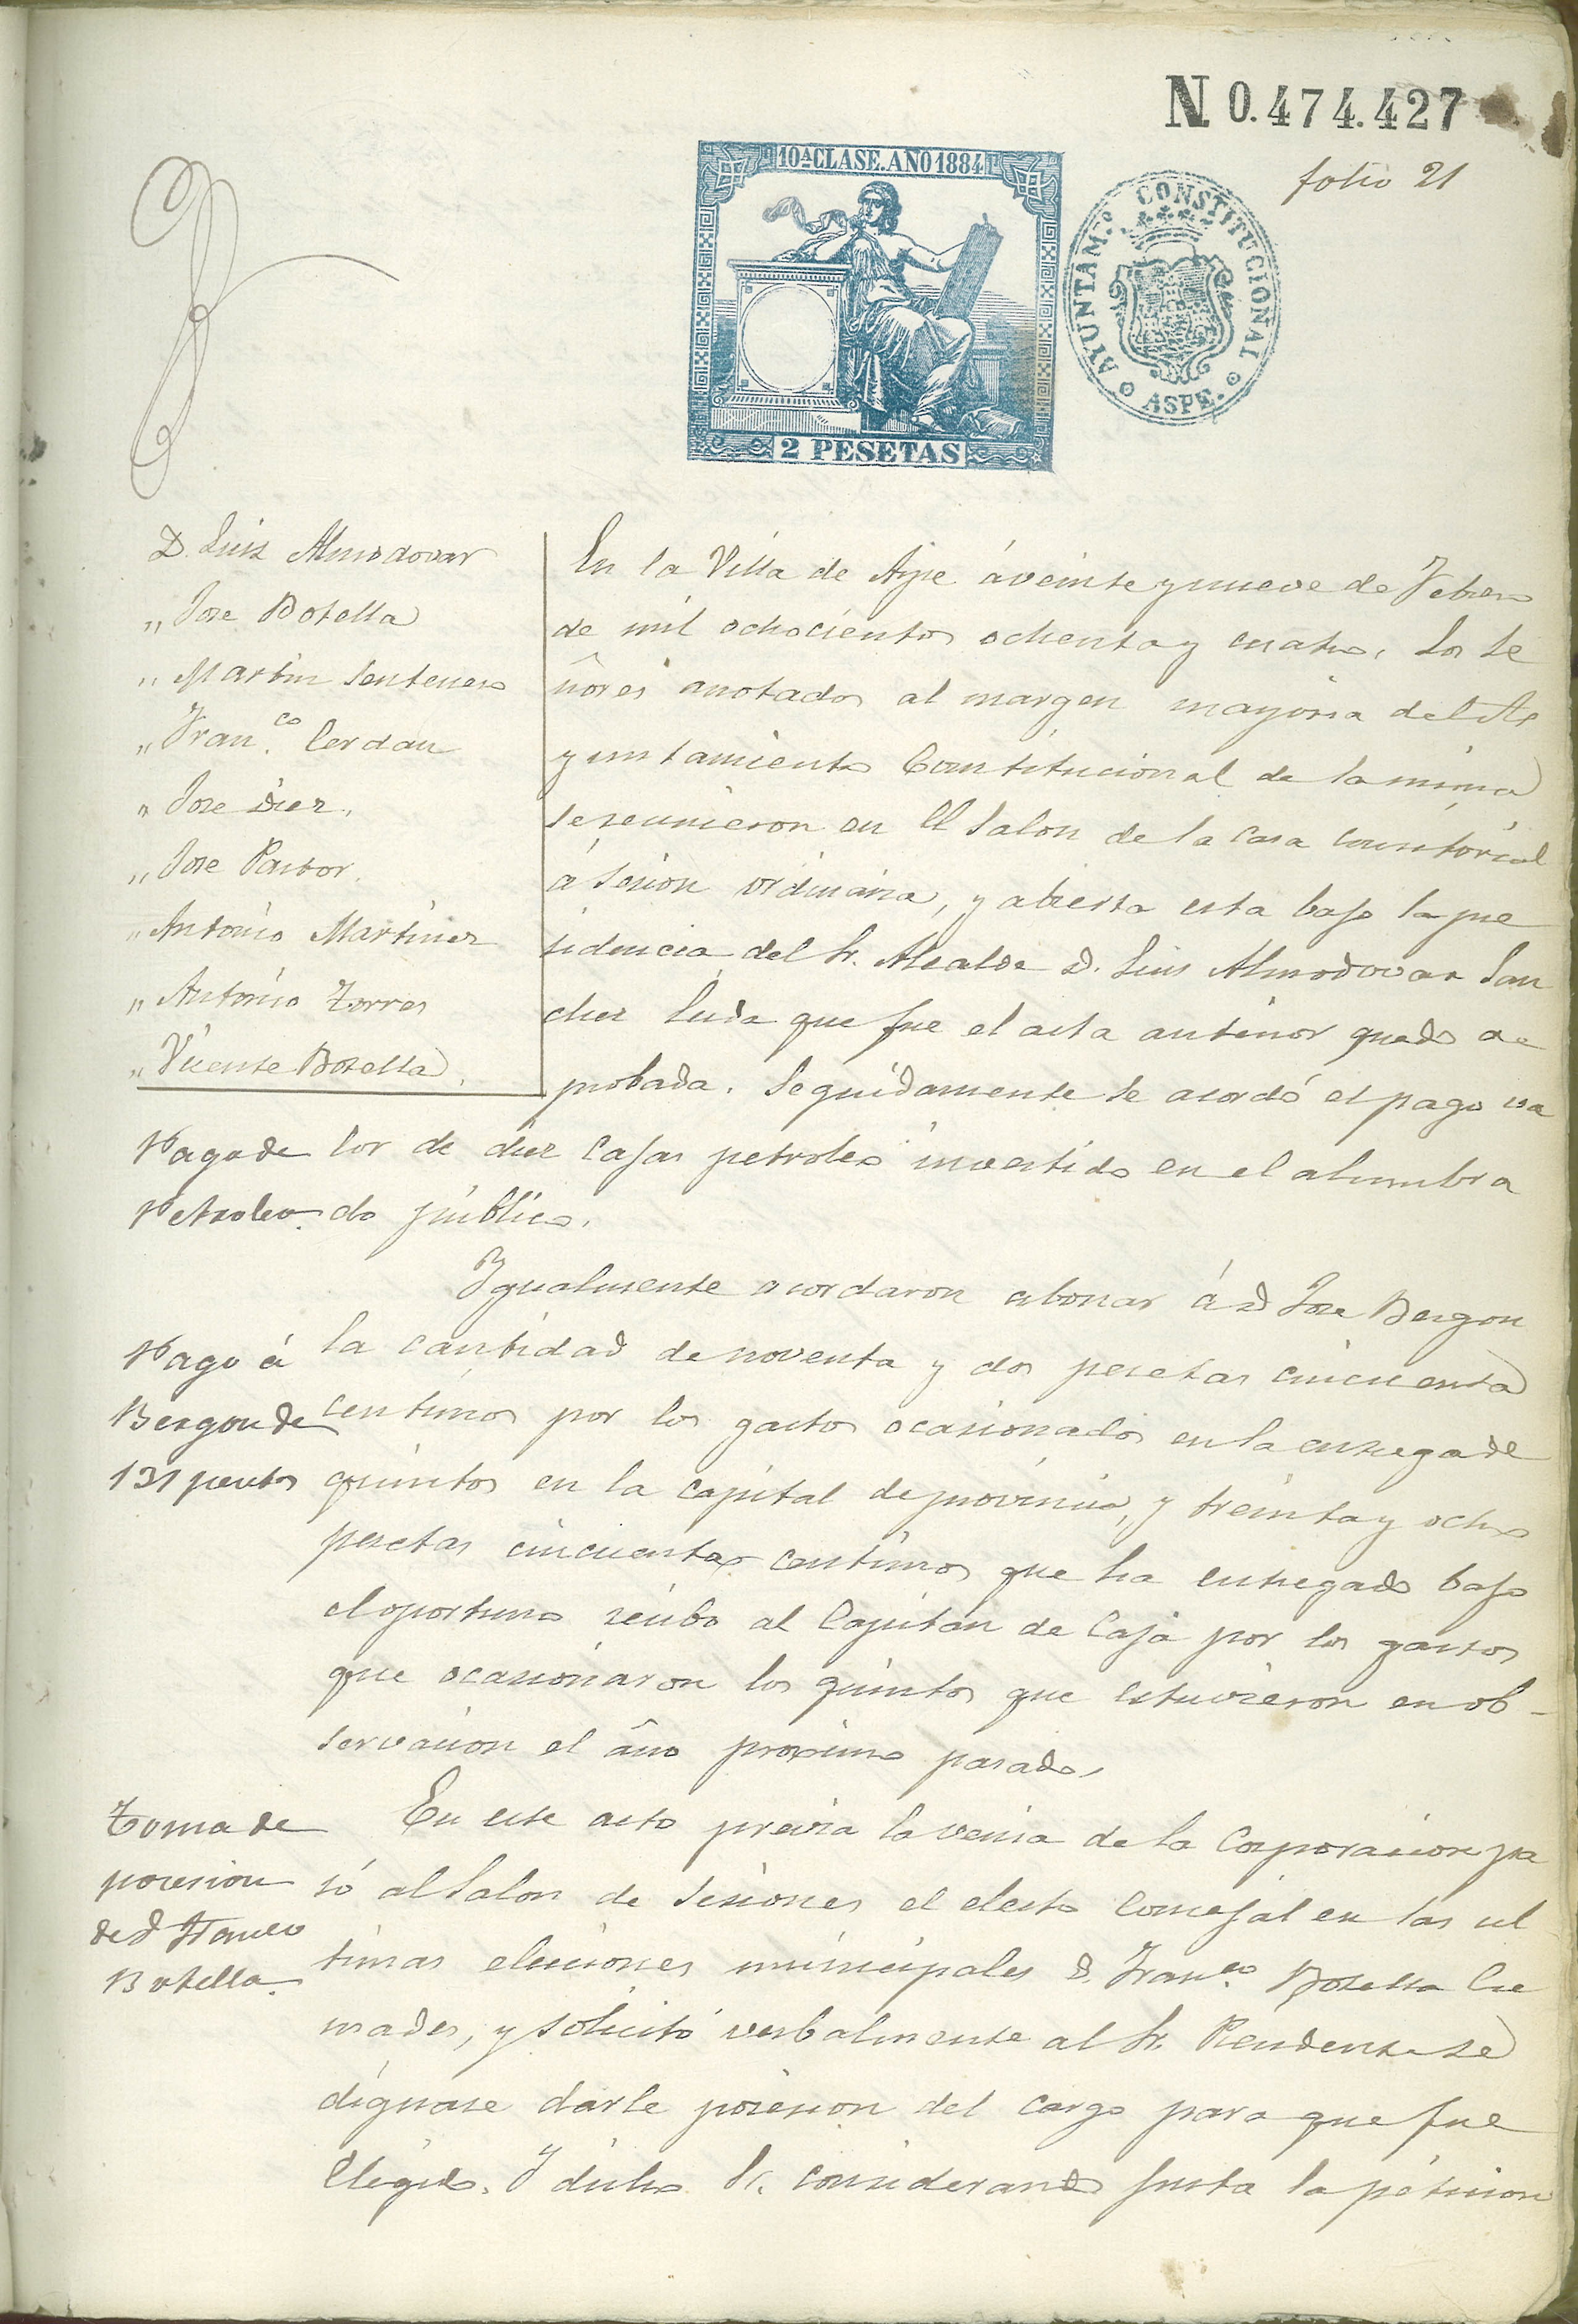 N 0.474.427
folio 21
10ª CLASE. AÑO 1884
2 PESETAS
AYUNTAM.º CONSTITUCIONAL
ASPE.
D. Luis Almodovar
" Jose Botella
" Martin Sentenero
" Fran.co Cerdan
" Jose Diez.
" Jose Pastor.
" Antonio Martinez
" Antonio Torres
" Vicente Botella.
En la Villa de Aspe á veinte y nueve de Febrero
de mil ochocientos ochenta y cuatro. Los Se
ñores anotados al margen mayoria del A
yuntamiento Constitucional de la misma
se reunieron en el Salon de la Casa Consistorial
á sesion ordinaria, y abierta esta bajo la pre
sidencia del Sr. Alcalde D. Luis Almodovar San
chez leida que fue el acta anterior quedo a=
probada. Seguidamente se acordó el pago va
Pago de
Petroleo.
lor de diez cajas petroleo invertido en el alumbra
do público.
Ygualmente acordaron abonar á D Jose Bergon
Pago á
Bergon de
131 pesetas
la cantidad de noventa y dos pesetas cincuenta
centimos por los gastos ocasionados en la entrega de
quintos en la capital de provincia, y treinta y ocho
pesetas cincuenta centimos que ha entregado bajo
el oportuno recibo al Capitan de Caja por los gastos
que ocasionaron los quintos que estuvieron en ob-
servacion el año proximo pasado.
Toma de
posesion
de D Franco
Botella.
En este acto previa la venia de la Corporacion pa
só al Salon de Sesiones el electo Concejal en las ul
timas elecciones municipales D. Fran.co Botella Cre
mades, y solicitó verbalmente al Sr. Presidente se
dignase darle posesion del cargo para que fue
elegido. Y dicho Sr. considerando justa la peticion